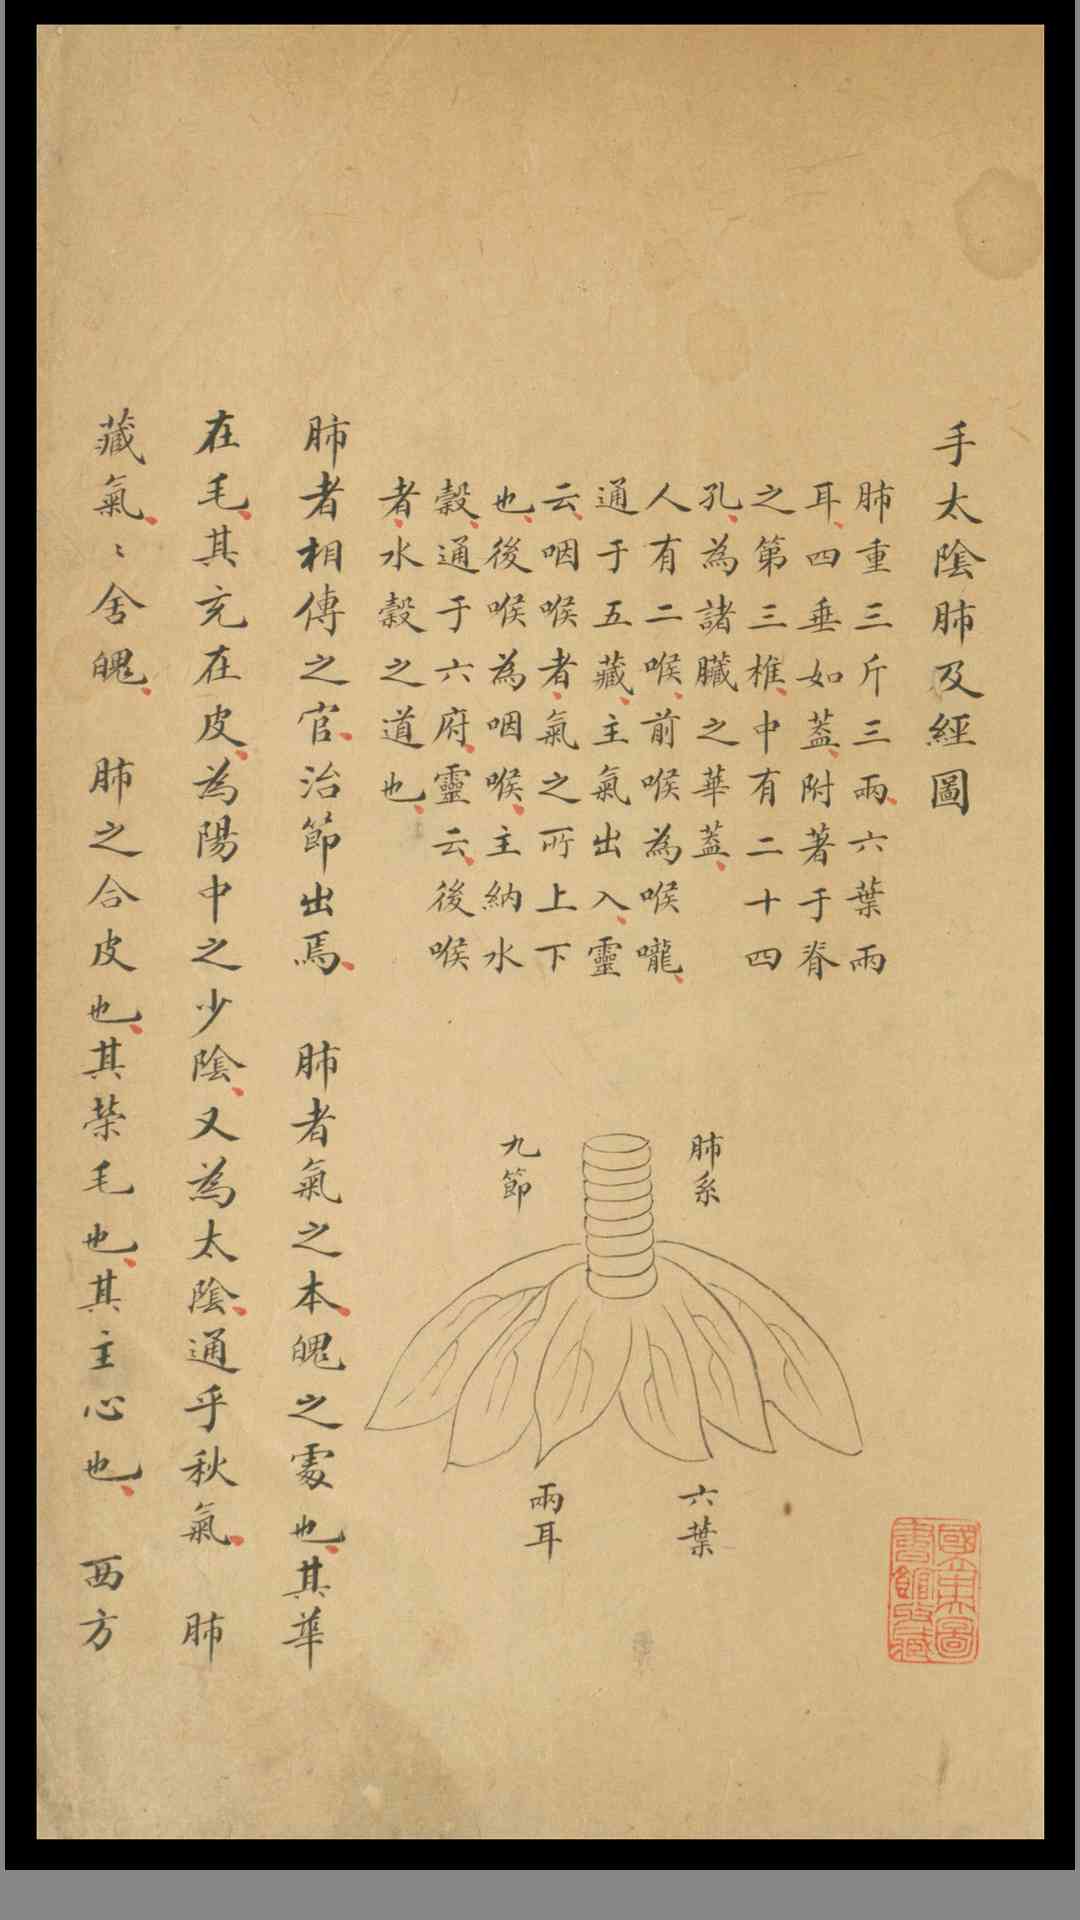 手太陰肺及經圖
肺重三斤三兩、六葉兩
耳、四垂如蓋、附著于脊
之第三椎、中有二十四
孔、為諸臟之華蓋、
人有二喉、前喉為喉嚨、
通于五藏、主氣出入、靈
云、咽喉者、氣之所上下
也、後喉為咽喉、主納水
穀、通于六府、靈云、後喉
者、水穀之道也、
肺者相傳之官、治節出焉、 肺者氣之本、魄之處也、其華
在毛、其充在皮、為陽中之少陰、又為太陰、通乎秋氣、 肺
藏氣、〻舍魄、 肺之合皮也、其荣毛也、其主心也、 西方
肺系
九節
六葉
兩耳
國立北平圖
書館收藏